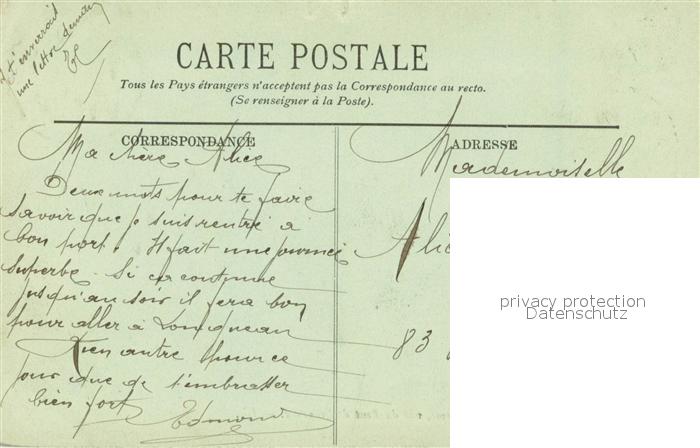 t'enverrai
une lettre demain
CARTE POSTALE
Tous les Pays étrangers n'acceptent pas la Correspondance au recto.
(Se renseigner à la Poste).
CORRESPONDANCE
Ma chère Alice
Deux mots pour te faire
savoir que je suis rentré à
bon port. Il fait une journée
superbe. Si ca continue
jusqu'au soir il fera bon
pour aller à Longueau
Rien autre pour ce
jour que de t'embrasser
bien fort
Edmond
ADRESSE
Mademoiselle
Alic
83
privacy protection
Datenschutz